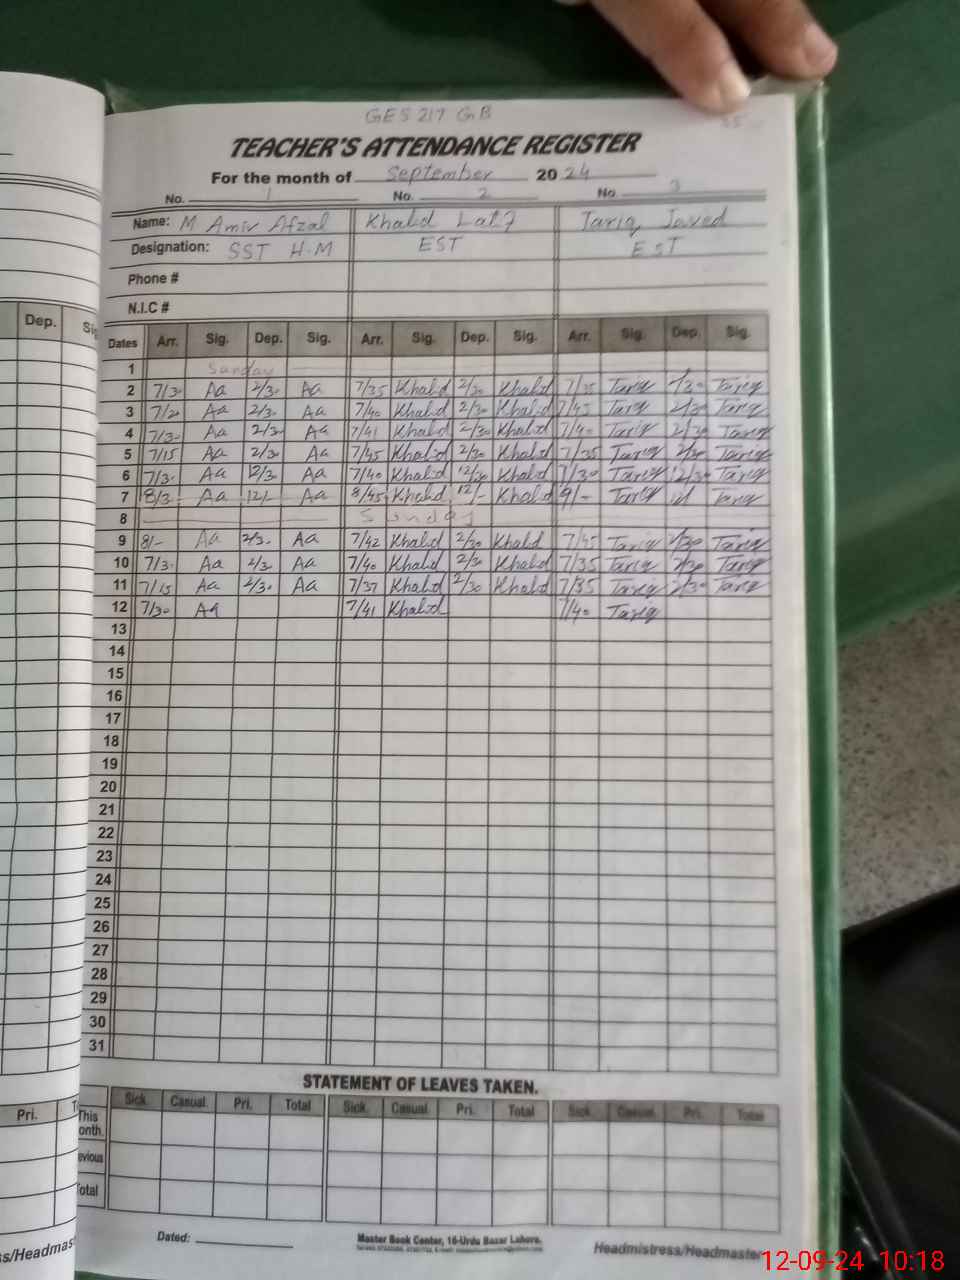 GES 217 GB
TEACHER'S ATTENDANCE REGISTER
For the month of September 2024
No. 1 No. 2 No. 3
Name: M Amir Afzal Khalid Latif Tariq Javed
Designation: SST H.M EST EST
Phone #
N.I.C #
Dep. Sig
Dates Arr. Sig. Dep. Sig. Arr. Sig. Dep. Sig. Arr. Sig. Dep. Sig.
1 Sunday
2 7/30 Aa 2/30 Aa 7/35 Khalid 2/30 Khalid 7/35 Tariq 2/30 Tariq
3 7/20 Aa 2/30 Aa 7/40 Khalid 2/30 Khalid 7/45 Tariq 2/30 Tariq
4 7/30 Aa 2/30 Aa 7/41 Khalid 2/30 Khalid 7/40 Tariq 2/30 Tariq
5 7/15 Aa 2/30 Aa 7/45 Khalid 2/30 Khalid 7/35 Tariq 2/30 Tariq
6 7/30 Aa 12/30 Aa 7/40 Khalid 12/30 Khalid 7/30 Tariq 12/30 Tariq
7 8/30 Aa 12/- Aa 8/45 Khalid 12/- Khalid 9/- Tariq Tariq
8 Sunday
9 8/- Aa 2/30 Aa 7/42 Khalid 2/30 Khalid 7/45 Tariq 2/30 Tariq
10 7/30 Aa 2/30 Aa 7/40 Khalid 2/30 Khalid 7/35 Tariq 2/30 Tariq
11 7/15 Aa 2/30 Aa 7/37 Khalid 2/30 Khalid 7/35 Tariq 2/30 Tariq
12 7/30 Aa 7/41 Khalid 7/40 Tariq
13
14
15
16
17
18
19
20
21
22
23
24
25
26
27
28
29
30
31
STATEMENT OF LEAVES TAKEN.
Sick. Casual. Pri. Total Sick. Casual Pri. Total Sick. Casual. Pri. Total
Pri.
This
onth.
evious
otal
Dated:
Master Book Center, 16-Urdu Bazar Lahore.
Headmistress/Headmaster
ss/Headmas
12-09-24 10:18